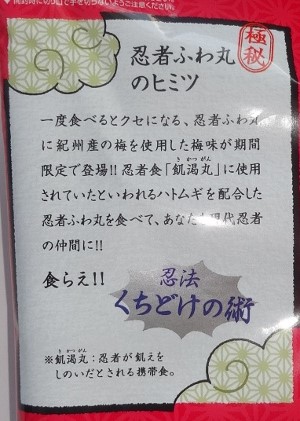 開封時に切り口で手を切らないようご注意ください。
極秘
忍者ふわ丸
のヒミツ
一度食べるとクセになる、忍者ふわ丸
に紀州産の梅を使用した梅味が期間
限定で登場!!忍者食「飢渇丸」に使用
きかつがん
されていたといわれるハトムギを配合した
忍者ふわ丸を食べて、あなたも現代忍者
の仲間に!!
食らえ!!
忍法
くちどけの術
きかつがん
※飢渇丸:忍者が飢えを
しのいだとされる携帯食。